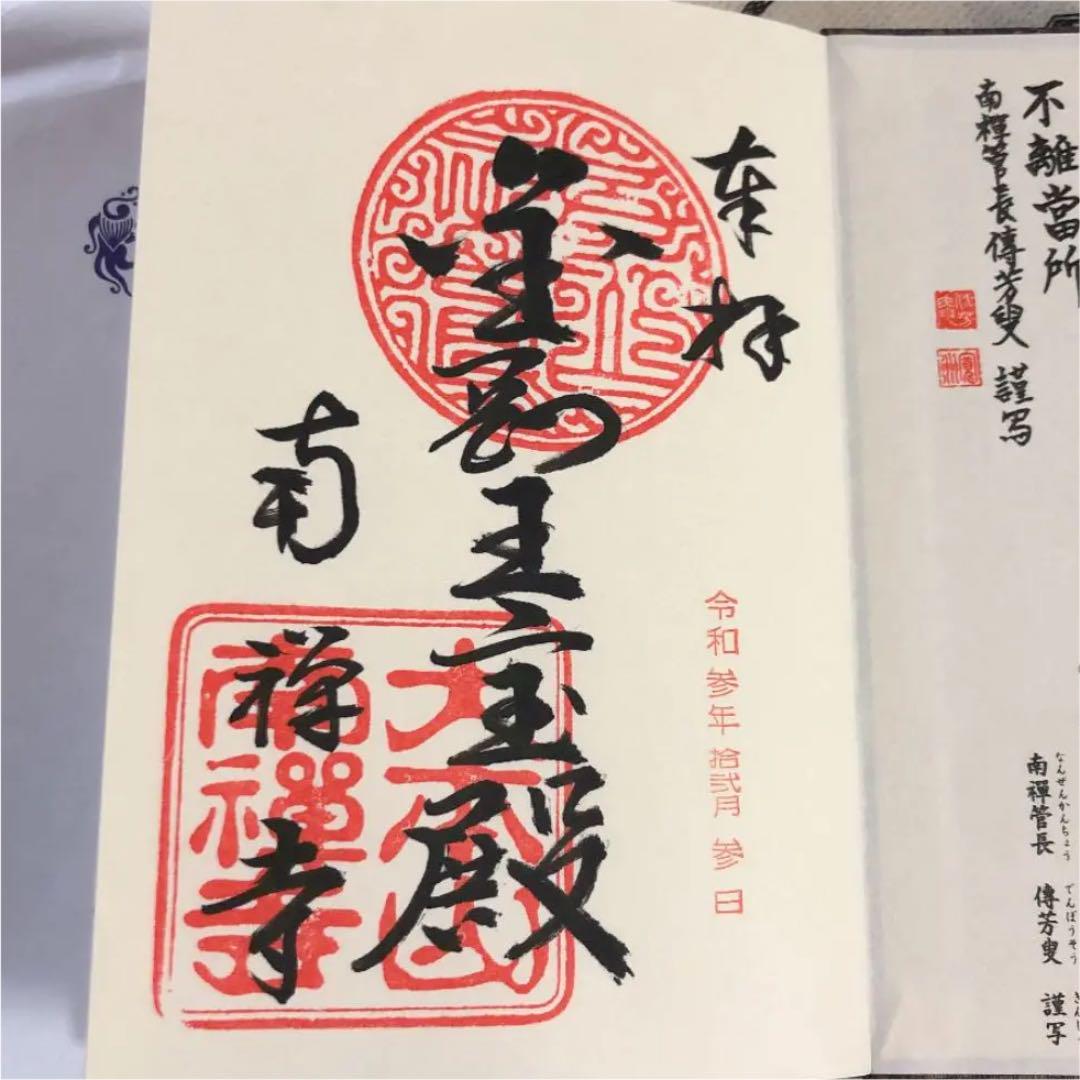 不離當所
南禪管長傳芳叟 謹写
なんぜんかんちょう でんぽうそう
南禪管長 傳芳叟 謹写
奉拝
令和参年拾弐月参日
金剛王宝殿
南禅寺
南禪寺